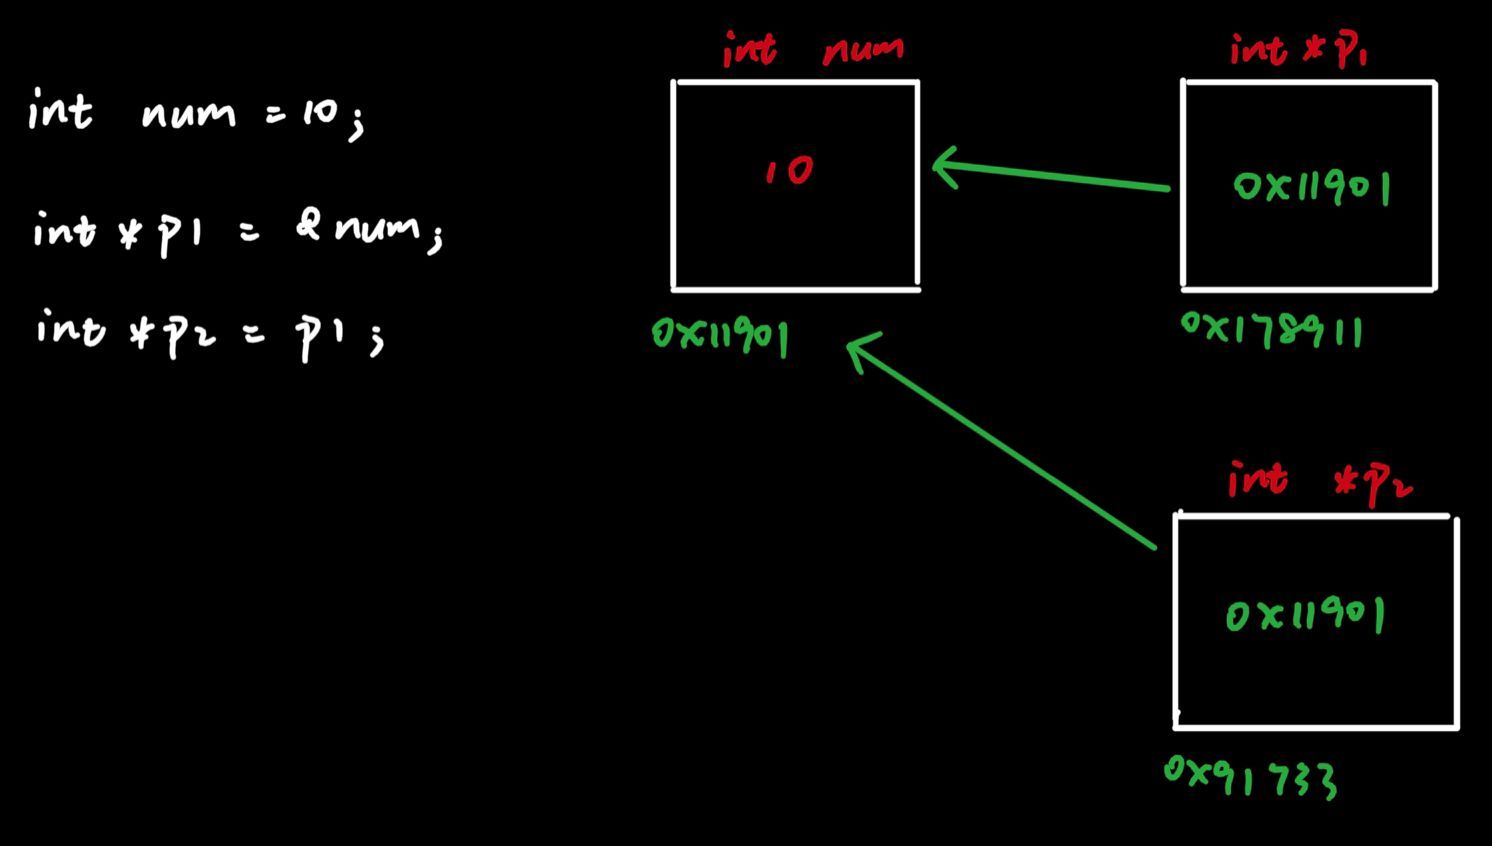 int num = 10;
int *p1 = &num;
int *p2 = p1;
int num
10
0x11901
int *p1
0x11901
0x178911
int *p2
0x11901
0x91733